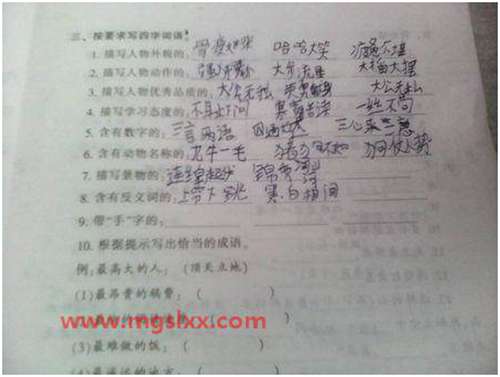 三、按要求写四字词语。
1. 描写人物外貌的: 骨瘦如柴 哈哈大笑
2. 描写人物动作的: 大汗 大摇大摆
3. 描写人物优秀品质的: 大公无私 大公无私
4. 描写学习态度的: 不耻下问 寒窗苦读 一丝不苟
5. 含有数字的: 三言两语 四通 三心二意
6. 含有动物名称的: 九牛一毛 狗仗人势
7. 描写景物的: 连绵起伏 锦秀河山
8. 含有反义词的: 上窜下跳 黑白相间
9. 带“手”字的:
10. 根据提示写出恰当的成语。
例:最高大的人: (顶天立地)
(1)最昂贵的稿费: ( )
www.mgslxx.com
(3)最难做的饭: ( )
(4)最遥远的地方: (